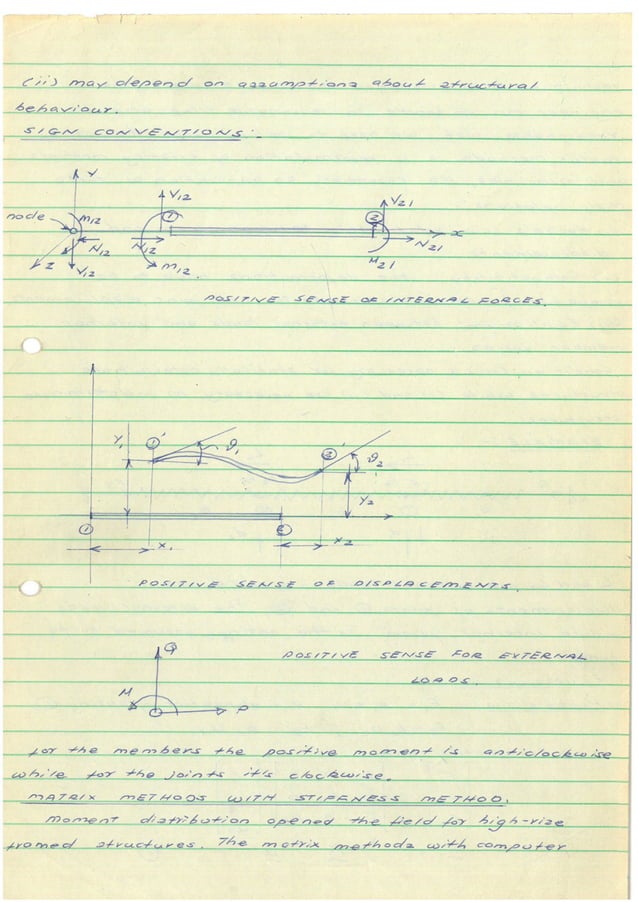 (ii) may depend on assumptions about structural
behaviour.
SIGN CONVENTIONS:-
Y
node
M12
N12
Z
V12
V12
1
N12
M12
2
V21
x
N21
M21
POSITIVE SENSE OF INTERNAL FORCES.
Y1
1'
θ1
2'
θ2
Y2
1
2
x1
x2
POSITIVE SENSE OF DISPLACEMENTS.
Q
M
P
POSITIVE SENSE FOR EXTERNAL
LOADS.
for the members the positive moment is anticlockwise
while for the joints it's clockwise.
MATRIX METHODS WITH STIFFNESS METHOD.
Moment distribution opened the field for high-rise
framed structures. The matrix methods with computer